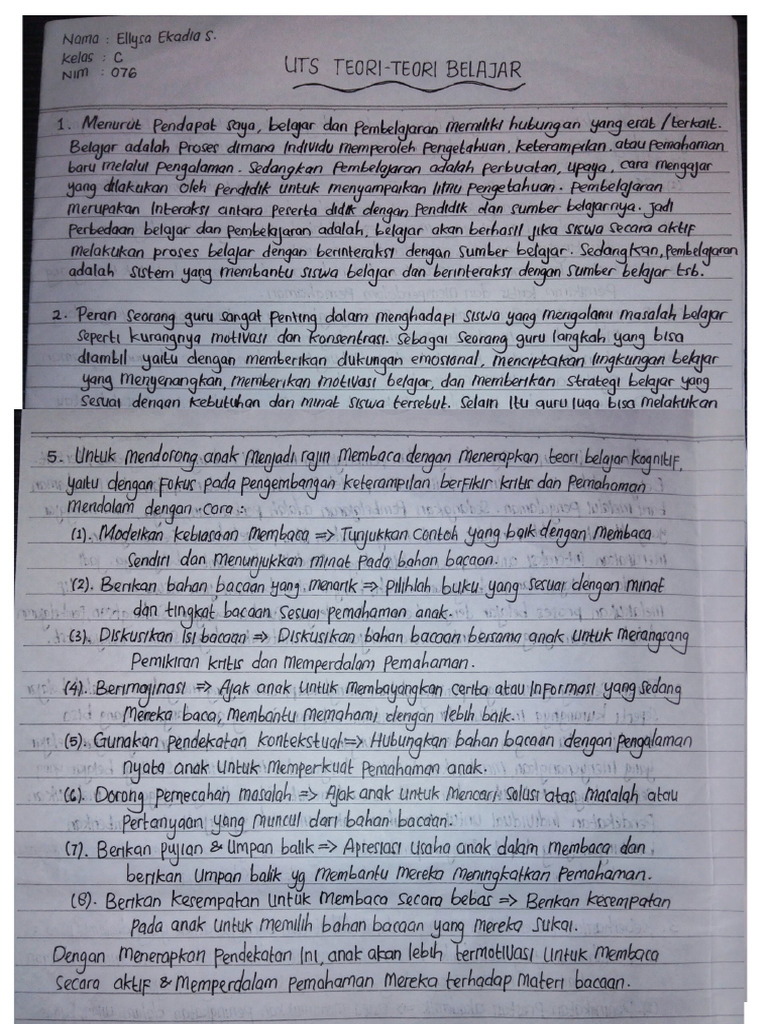 Nama : Ellysa Ekadia S.
Kelas : C
NIM : 076
UTS TEORI-TEORI BELAJAR
1. Menurut Pendapat saya, belajar dan Pembelajaran memiliki hubungan yang erat / terkait.
Belajar adalah Proses dimana Individu memperoleh Pengetahuan, keterampilan, atau pemahaman
baru melalui Pengalaman. Sedangkan Pembelajaran adalah perbuatan, upaya, cara mengajar
yang dilakukan oleh Pendidik untuk menyampaikan Ilmu Pengetahuan. Pembelajaran
merupakan Interaksi antara peserta didik dengan Pendidik dan sumber belajarnya. Jadi
Perbedaan belajar dan Pembelajaran adalah, belajar akan berhasil jika siswa secara aktif
melakukan proses belajar dengan berinteraksi dengan sumber belajar. Sedangkan, pembelajaran
adalah sistem yang membantu siswa belajar dan berinteraksi dengan sumber belajar tsb.
2. Peran Seorang guru sangat Penting dalam menghadapi siswa yang mengalami masalah belajar
seperti kurangnya motivasi dan konsentrasi. Sebagai seorang guru langkah yang bisa
diambil yaitu dengan memberikan dukungan emosional, menciptakan lingkungan belajar
yang menyenangkan, memberikan motivasi belajar, dan memberikan strategi belajar yang
sesuai dengan kebutuhan dan minat siswa tersebut. Selain Itu guru juga bisa melakukan
5. Untuk mendorong anak menjadi rajin Membaca dengan menerapkan teori belajar Kognitif,
yaitu dengan Fokus pada Pengembangan keterampilan berfikir kritis dan Pemahaman
Mendalam dengan cara :
(1). Modelkan kebiasaan membaca => Tunjukkan Contoh yang baik dengan Membaca
Sendiri dan menunjukkan minat pada bahan bacaan.
(2). Berikan bahan bacaan yang menarik => Pilihlah buku yang sesuai dengan minat
dan tingkat bacaan sesuai pemahaman anak.
(3). Diskusikan Isi bacaan => Diskusikan bahan bacaan bersama anak untuk merangsang
Pemikiran kritis dan memperdalam Pemahaman.
(4). Berimajinasi => Ajak anak Untuk Membayangkan cerita atau Informasi yang sedang
Mereka baca, Membantu memahami dengan lebih baik.
(5). Gunakan Pendekatan kontekstual => Hubungkan bahan bacaan dengan Pengalaman
nyata anak untuk memperkuat Pemahaman anak.
(6). Dorong Pemecahan masalah => Ajak anak untuk Mencari Solusi atas Masalah atau
Pertanyaan yang muncul dari bahan bacaan.
(7). Berikan Pujian & Umpan balik => Apresiasi Usaha anak dalam membaca dan
berikan Umpan balik yg membantu mereka meningkatkan Pemahaman.
(8). Berikan kesempatan Untuk Membaca Secara bebas => Berikan kesempatan
Pada anak Untuk memilih bahan bacaan yang mereka Sukai.
Dengan Menerapkan Pendekatan Ini, anak akan lebih termotivasi Untuk membaca
Secara aktif & Memperdalam pemahaman Mereka terhadap Materi bacaan.